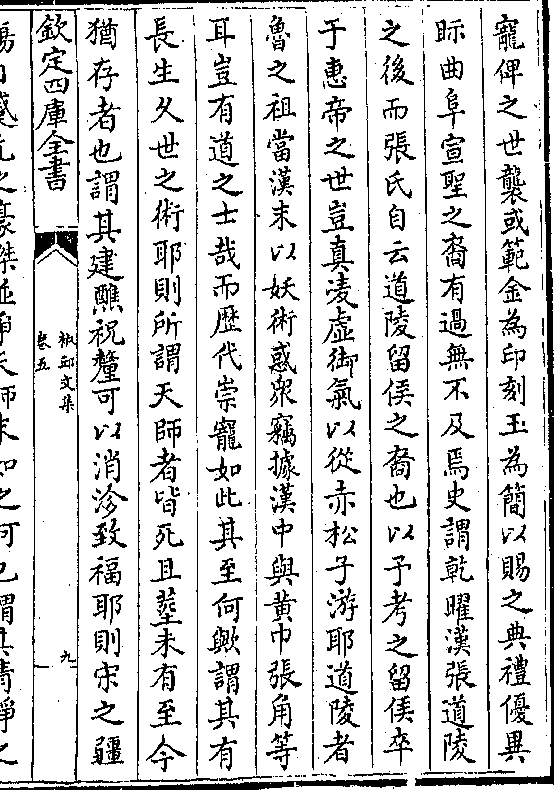 寵俾之世襲或範金為印刻玉為簡以賜之典禮優異
眎曲阜宣聖之裔有過無不及焉史謂乾曜漢張道陵
之後而張氏自云道陵留侯之裔也以予考之留侯卒
于惠帝之世豈真凌虚御氣以從赤松子游耶道陵者
魯之祖當漢末以妖術惑衆竊據漢中與黄巾張角等
耳豈有道之士哉而歴代崇寵如此其至何歟謂其有
長生久世之術耶則所謂天師者皆死且塟未有至今
猶存者也謂其建醮祝釐可以消沴致福耶則宋之疆
欽定四庫全書
椒邱文集
卷五
九